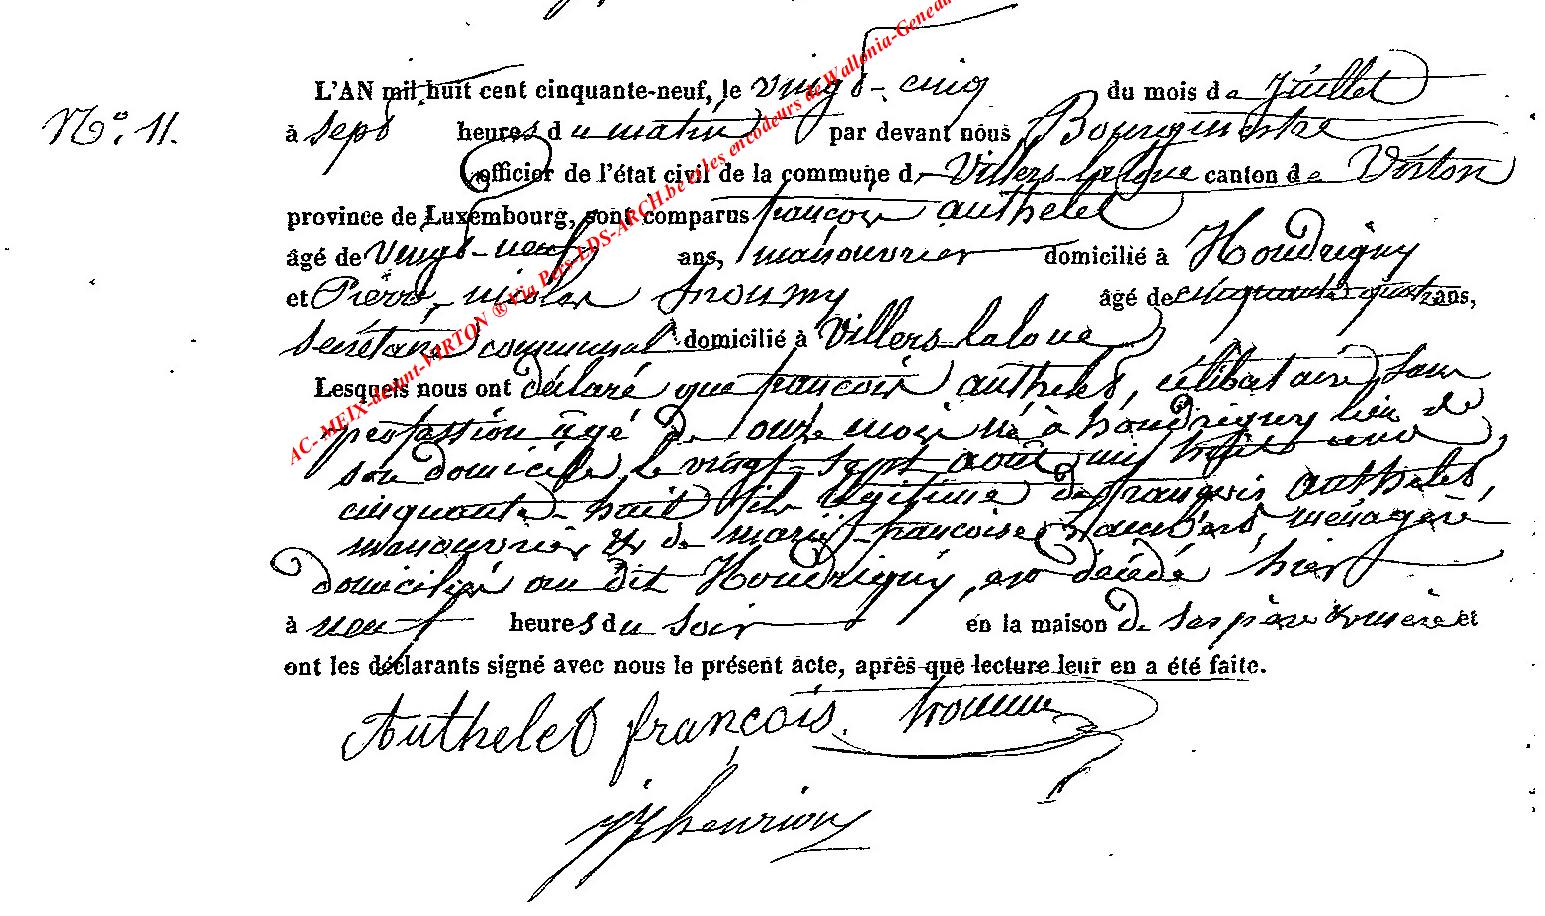 L'AN mil huit cent cinquante-neuf, le vingt-cinq du mois de Juillet
N° 11.
à sept heures du matin par devant nous Bourgmestre
officier de l'état civil de la commune de Villers-laloue canton de Virton
province de Luxembourg, sont comparus françois authelet
âgé de vingt-neuf ans, manouvrier domicilié à Houdrigny
et Pierre-nicolas âgé de cinquante-quatre ans,
secrétaire communal domicilié à Villers-laloue
Lesquels nous ont déclaré que françois authelet, célibataire, sans
profession âgé de onze mois né à houdrigny lieu de
son domicile le vingt-sept août mil huit cent
cinquante-huit fils légitime de françois authelet,
manouvrier & de marie-francoise ménagère
domiciliés au dit Houdrigny, est décédé hier
à neuf heures du soir en la maison de ses père & mère et
ont les déclarants signé avec nous le présent acte, après que lecture leur en a été faite.
Authelet françois.
jj henrion
AC- MEIX-devant-VIRTON ® Via Pers-LDS-ARCH.be et les encodeurs de Wallonia-Genea